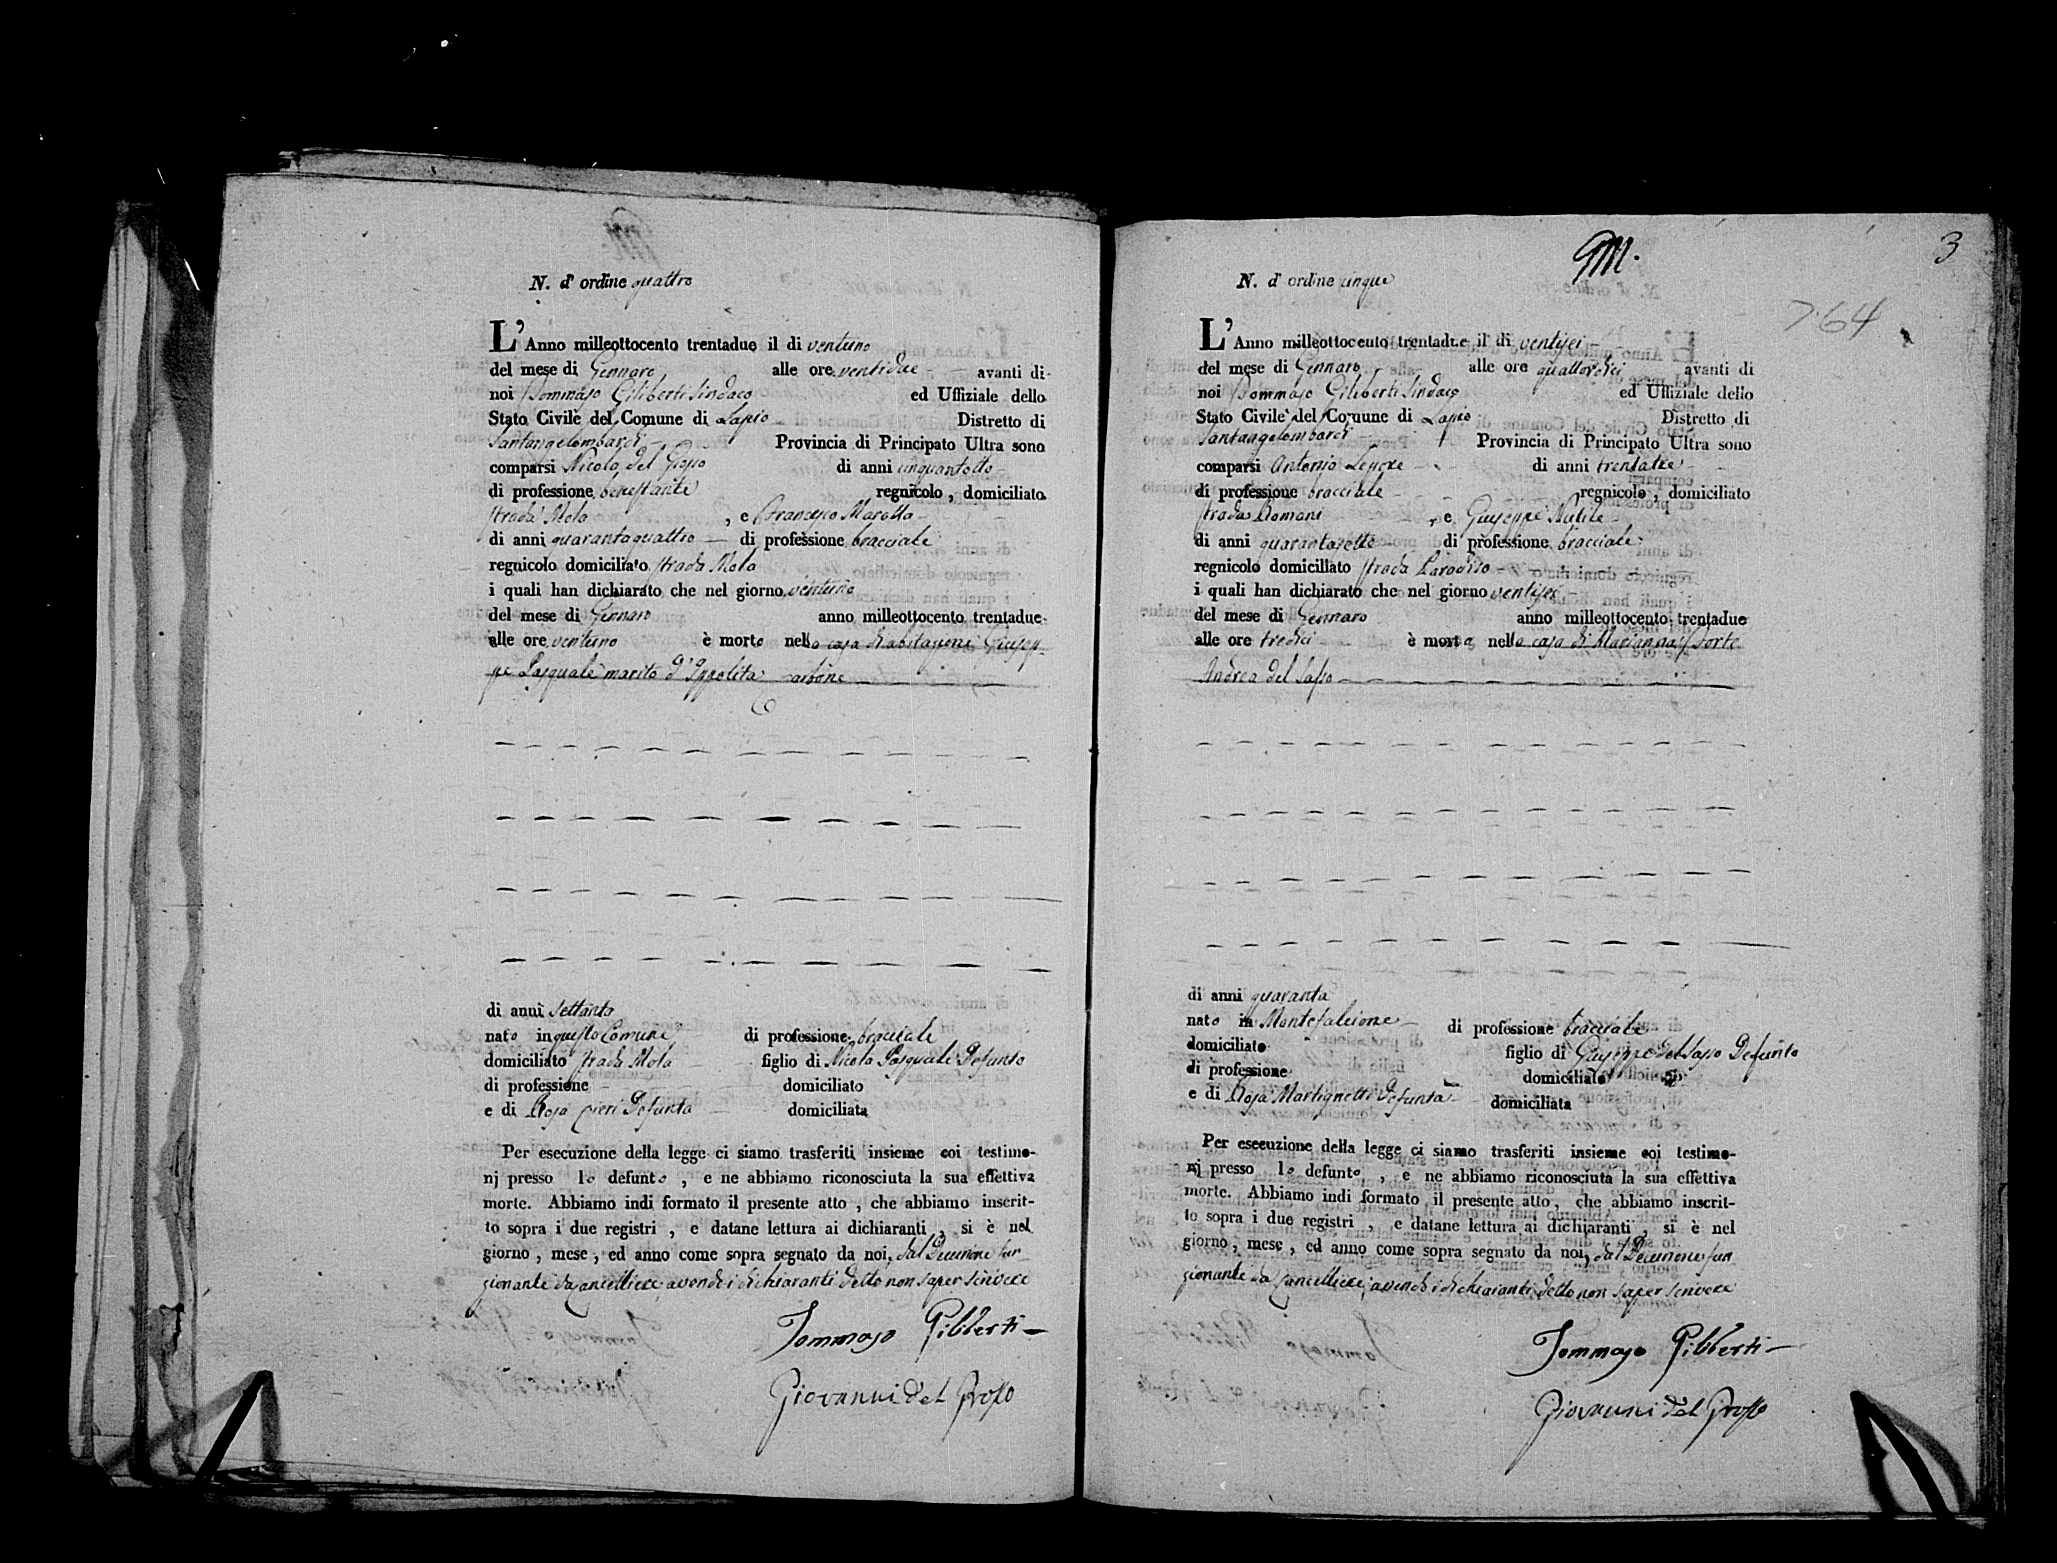 N. d' ordine quattro
L'Anno milleottocento trentaduo il di ventuno
del mese di Gennaro alle ore ventidue avanti di
noi Tommaso Giliberti Sindaco ed Uffiziale dello
Stato Civile del Comune di Lapio Distretto di
Santangelombardi Provincia di Principato Ultra sono
comparsi Nicola del Grosso di anni cinquantotto
di professione benestante regnicolo, domiciliato
strada Mola, e Francesco Marotta
di anni quarantaquattro di professione bracciale
regnicolo domiciliato strada Mola
i quali han dichiarato che nel giorno ventuno
del mese di Gennaro anno milleottocento trentadue
alle ore ventuno è morto nella casa d'abitazione Giusep-
pe Pasquale marito d'Ippolita
di anni settanta
nato in questo Comune di professione bracciale
domiciliato strada Mola figlio di Nicola Pasquale Defunto
di professione domiciliato
e di Rosa Defunta domiciliata
Per esecuzione della legge ci siamo trasferiti insieme coi testimo-
nj presso lo defunto, e ne abbiamo riconosciuta la sua effettiva
morte. Abbiamo indi formato il presente atto, che abbiamo inscrit-
to sopra i due registri, e datane lettura ai dichiaranti, si è nel
giorno, mese, ed anno come sopra segnato da noi, dal Decurione fun
zionante da Cancelliere avendo i dichiaranti detto non saper scrivere
Tommaso Giliberti
Giovanni del Grosso
3
764
N. d' ordine cinque
L'Anno milleottocento trentadue il di ventisei
del mese di Gennaro alle ore quattordici avanti di
noi Tommaso Giliberti Sindaco ed Uffiziale dello
Stato Civile del Comune di Lapio Distretto di
Santangelombardi Provincia di Principato Ultra sono
comparsi Antonio Lepore di anni trentatre
di professione bracciale regnicolo, domiciliato
strada Romani, e Giuseppe Nutile
di anni quarantasette di professione bracciale
regnicolo domiciliato strada Paradiso
i quali han dichiarato che nel giorno ventisei
del mese di Gennaro anno milleottocento trentadue
alle ore tredici è morto nella casa di Marianna Forte
Andrea del Sasso
di anni quaranta
nato in Montefalcione di professione bracciale
domiciliato figlio di Giuseppe del Sasso Defunto
di professione domiciliato
e di Rosa Martignetti Defunta domiciliata
Per esecuzione della legge ci siamo trasferiti insieme coi testimo-
nj presso lo defunto, e ne abbiamo riconosciuta la sua effettiva
morte. Abbiamo indi formato il presente atto, che abbiamo inscrit-
to sopra i due registri, e datane lettura ai dichiaranti, si è nel
giorno, mese, ed anno come sopra segnato da noi, dal Decurione fun
zionante da Cancelliere, avendo i dichiaranti detto non saper scrivere
Tommaso Giliberti
Giovanni del Grosso